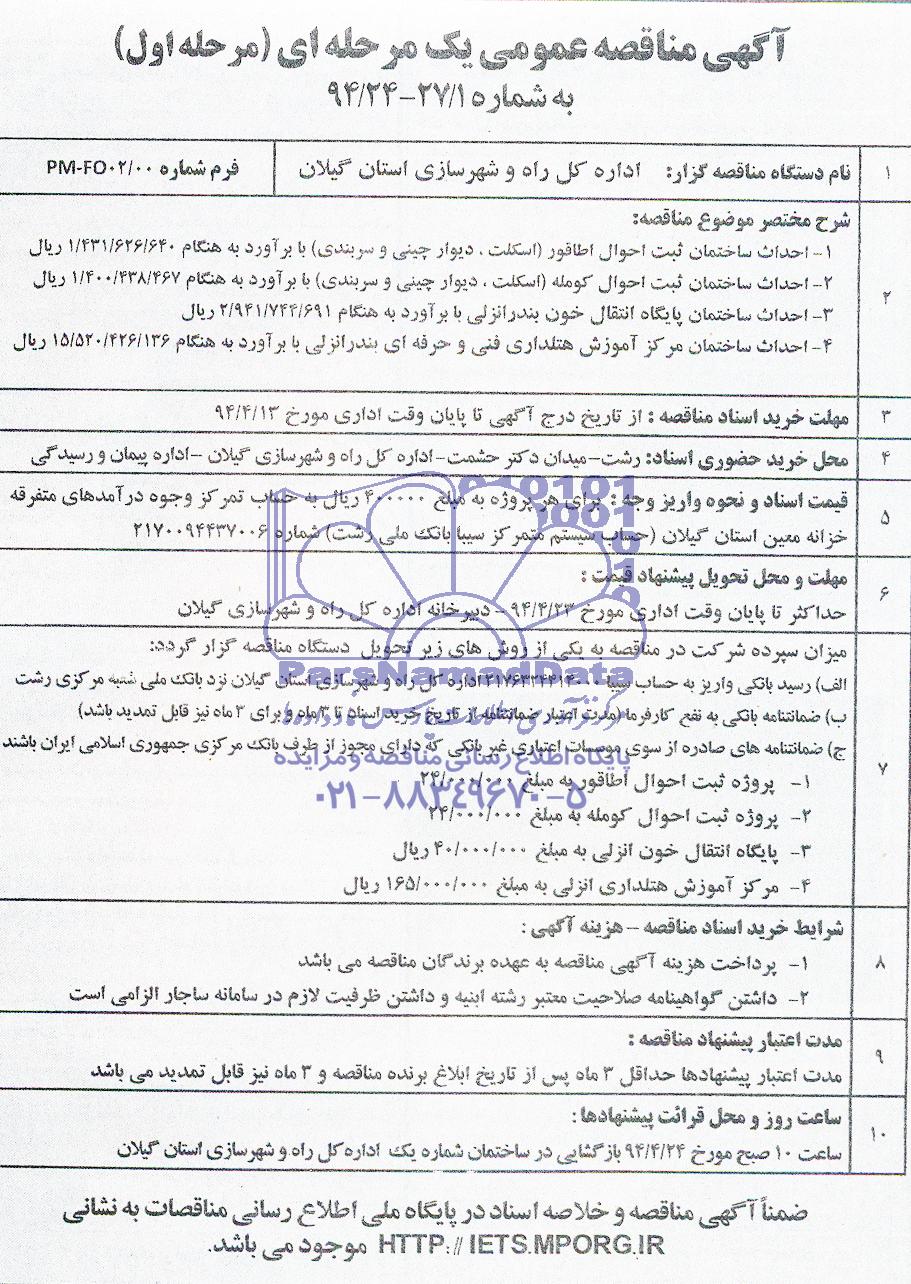 آگهی مناقصه عمومی یک مرحله ای (مرحله اول)
به شماره ۹۴/۲۴-۲۷/۱
۱
نام دستگاه مناقصه گزار: اداره کل راه و شهرسازی استان گیلان
فرم شماره PM-FO۰۲/۰۰
۲
شرح مختصر موضوع مناقصه:
۱- احداث ساختمان ثبت احوال اطاقور (اسکلت ، دیوار چینی و سربندی) با برآورد به هنگام ۱/۴۳۱/۶۲۶/۶۴۰ ریال
۲- احداث ساختمان ثبت احوال کومله (اسکلت ، دیوار چینی و سربندی) با برآورد به هنگام ۱/۴۰۰/۴۳۸/۴۶۷ ریال
۳- احداث ساختمان پایگاه انتقال خون بندرانزلی با برآورد به هنگام ۲/۹۴۱/۷۴۴/۶۹۱ ریال
۴- احداث ساختمان مرکز آموزش هتلداری فنی و حرفه ای بندرانزلی با برآورد به هنگام ۱۵/۵۲۰/۴۲۶/۱۳۶ ریال
۳
مهلت خرید اسناد مناقصه : از تاریخ درج آگهی تا پایان وقت اداری مورخ ۹۴/۴/۱۳
۴
محل خرید حضوری اسناد: رشت-میدان دکتر حشمت-اداره کل راه و شهرسازی گیلان -اداره پیمان و رسیدگی
۵
قیمت اسناد و نحوه واریز وجه : برای هر پروژه به مبلغ ۴۰۰۰۰۰ ریال به حساب تمرکز وجوه درآمدهای متفرقه
خزانه معین استان گیلان (حساب سیستم متمرکز سیبا بانک ملی رشت) شماره ۲۱۷۰۰۹۴۴۳۷۰۰۶
۶
مهلت و محل تحویل پیشنهاد قیمت :
حداکثر تا پایان وقت اداری مورخ ۹۴/۴/۲۳ - دبیرخانه اداره کل راه و شهرسازی گیلان
۷
میزان سپرده شرکت در مناقصه به یکی از روش های زیر تحویل دستگاه مناقصه گزار گردد:
الف) رسید بانکی واریز به حساب سیبا اداره کل راه و شهرسازی استان گیلان نزد بانک ملی شعبه مرکزی رشت
ب) ضمانتنامه بانکی به نفع کارفرما (مدت اعتبار ضمانتنامه از تاریخ خرید اسناد تا ۳ ماه و برای ۳ ماه نیز قابل تمدید باشد)
ج) ضمانتنامه های صادره از سوی موسسات اعتباری غیر بانکی که دارای مجوز از طرف بانک مرکزی جمهوری اسلامی ایران باشند
۱- پروژه ثبت احوال اطاقور به مبلغ ۲۴/۰۰۰/۰۰۰
۲- پروژه ثبت احوال کومله به مبلغ ۲۴/۰۰۰/۰۰۰
۳- پایگاه انتقال خون انزلی به مبلغ ۴۰/۰۰۰/۰۰۰ ریال
۴- مرکز آموزش هتلداری انزلی به مبلغ ۱۶۵/۰۰۰/۰۰۰ ریال
ParsNamadData
پایگاه اطلاع رسانی مناقصه و مزایده
۰۲۱-۸۸۳۴۹۶۷۰-۵
۸
شرایط خرید اسناد مناقصه - هزینه آگهی :
۱- پرداخت هزینه آگهی مناقصه به عهده برندگان مناقصه می باشد
۲- داشتن گواهینامه صلاحیت معتبر رشته ابنیه و داشتن ظرفیت لازم در سامانه ساجار الزامی است
۹
مدت اعتبار پیشنهاد مناقصه :
مدت اعتبار پیشنهادها حداقل ۳ ماه پس از تاریخ ابلاغ برنده مناقصه و ۳ ماه نیز قابل تمدید می باشد
۱۰
ساعت روز و محل قرائت پیشنهادها :
ساعت ۱۰ صبح مورخ ۹۴/۴/۲۴ بازگشایی در ساختمان شماره یک اداره کل راه و شهرسازی استان گیلان
ضمناً آگهی مناقصه و خلاصه اسناد در پایگاه ملی اطلاع رسانی مناقصات به نشانی
HTTP://IETS.MPORG.IR موجود می باشد.